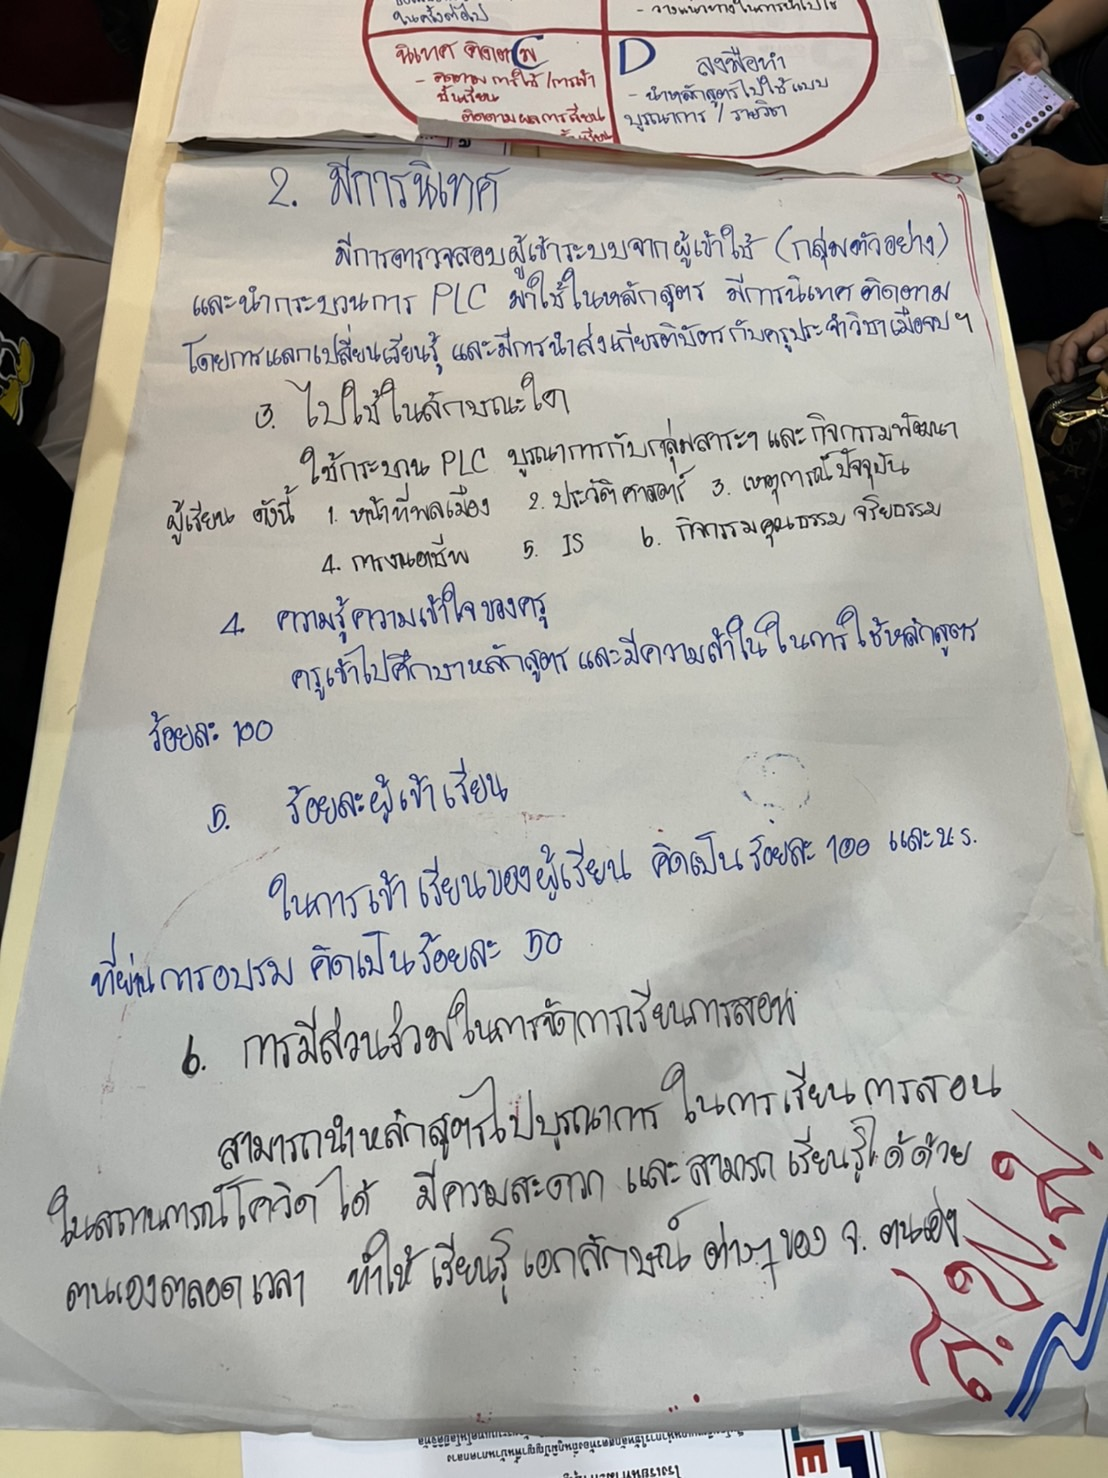 ในครั้งต่อไป
- วางแนวทางในการนำไปใช้
นิเทศ ติดตาม
C
- ติดตาม การใช้/การเข้า
ชั้นเรียน
ติดตามผลการเรียน
D
ลงมือทำ
- นำหลักสูตรไปใช้แบบ
บูรณาการ / รายวิชา
2. มีการนิเทศ
มีการตรวจสอบผู้เข้าระบบจากผู้เข้าใช้ (กลุ่มตัวอย่าง)
และนำกระบวนการ PLC มาใช้ในหลักสูตร มีการนิเทศ ติดตาม
โดยการแลกเปลี่ยนเรียนรู้ และมีการนำส่งเกียรติบัตรกับครูประจำวิชาเมื่อจบ ฯ
3. ไปใช้ในลักษณะใด
ใช้กระบวน PLC บูรณาการกับกลุ่มสาระฯ และกิจกรรมพัฒนา
ผู้เรียน ดังนี้ 1. หน้าที่พลเมือง 2. ประวัติศาสตร์ 3. เหตุการณ์ปัจจุบัน
4. การงานอาชีพ 5. IS 6. กิจกรรมคุณธรรม จริยธรรม
4. ความรู้ความเข้าใจของครู
ครูเข้าไปศึกษาหลักสูตร และมีความเข้าใจในการใช้หลักสูตร
ร้อยละ 100
5. ร้อยละผู้เข้าเรียน
ในการเข้าเรียนของผู้เรียน คิดเป็นร้อยละ 100 และ น.ร.
ที่ผ่านการอบรม คิดเป็นร้อยละ 50
6. การมีส่วนร่วมในการจัดการเรียนการสอน
สามารถนำหลักสูตรไปบูรณาการ ในการเรียนการสอน
ในสถานการณ์โควิดได้ มีความสะดวก และสามารถเรียนรู้ได้ด้วย
ตนเองตลอดเวลา ทำให้เรียนรู้เอกลักษณ์ต่างๆ ของ จ. ตนเอง